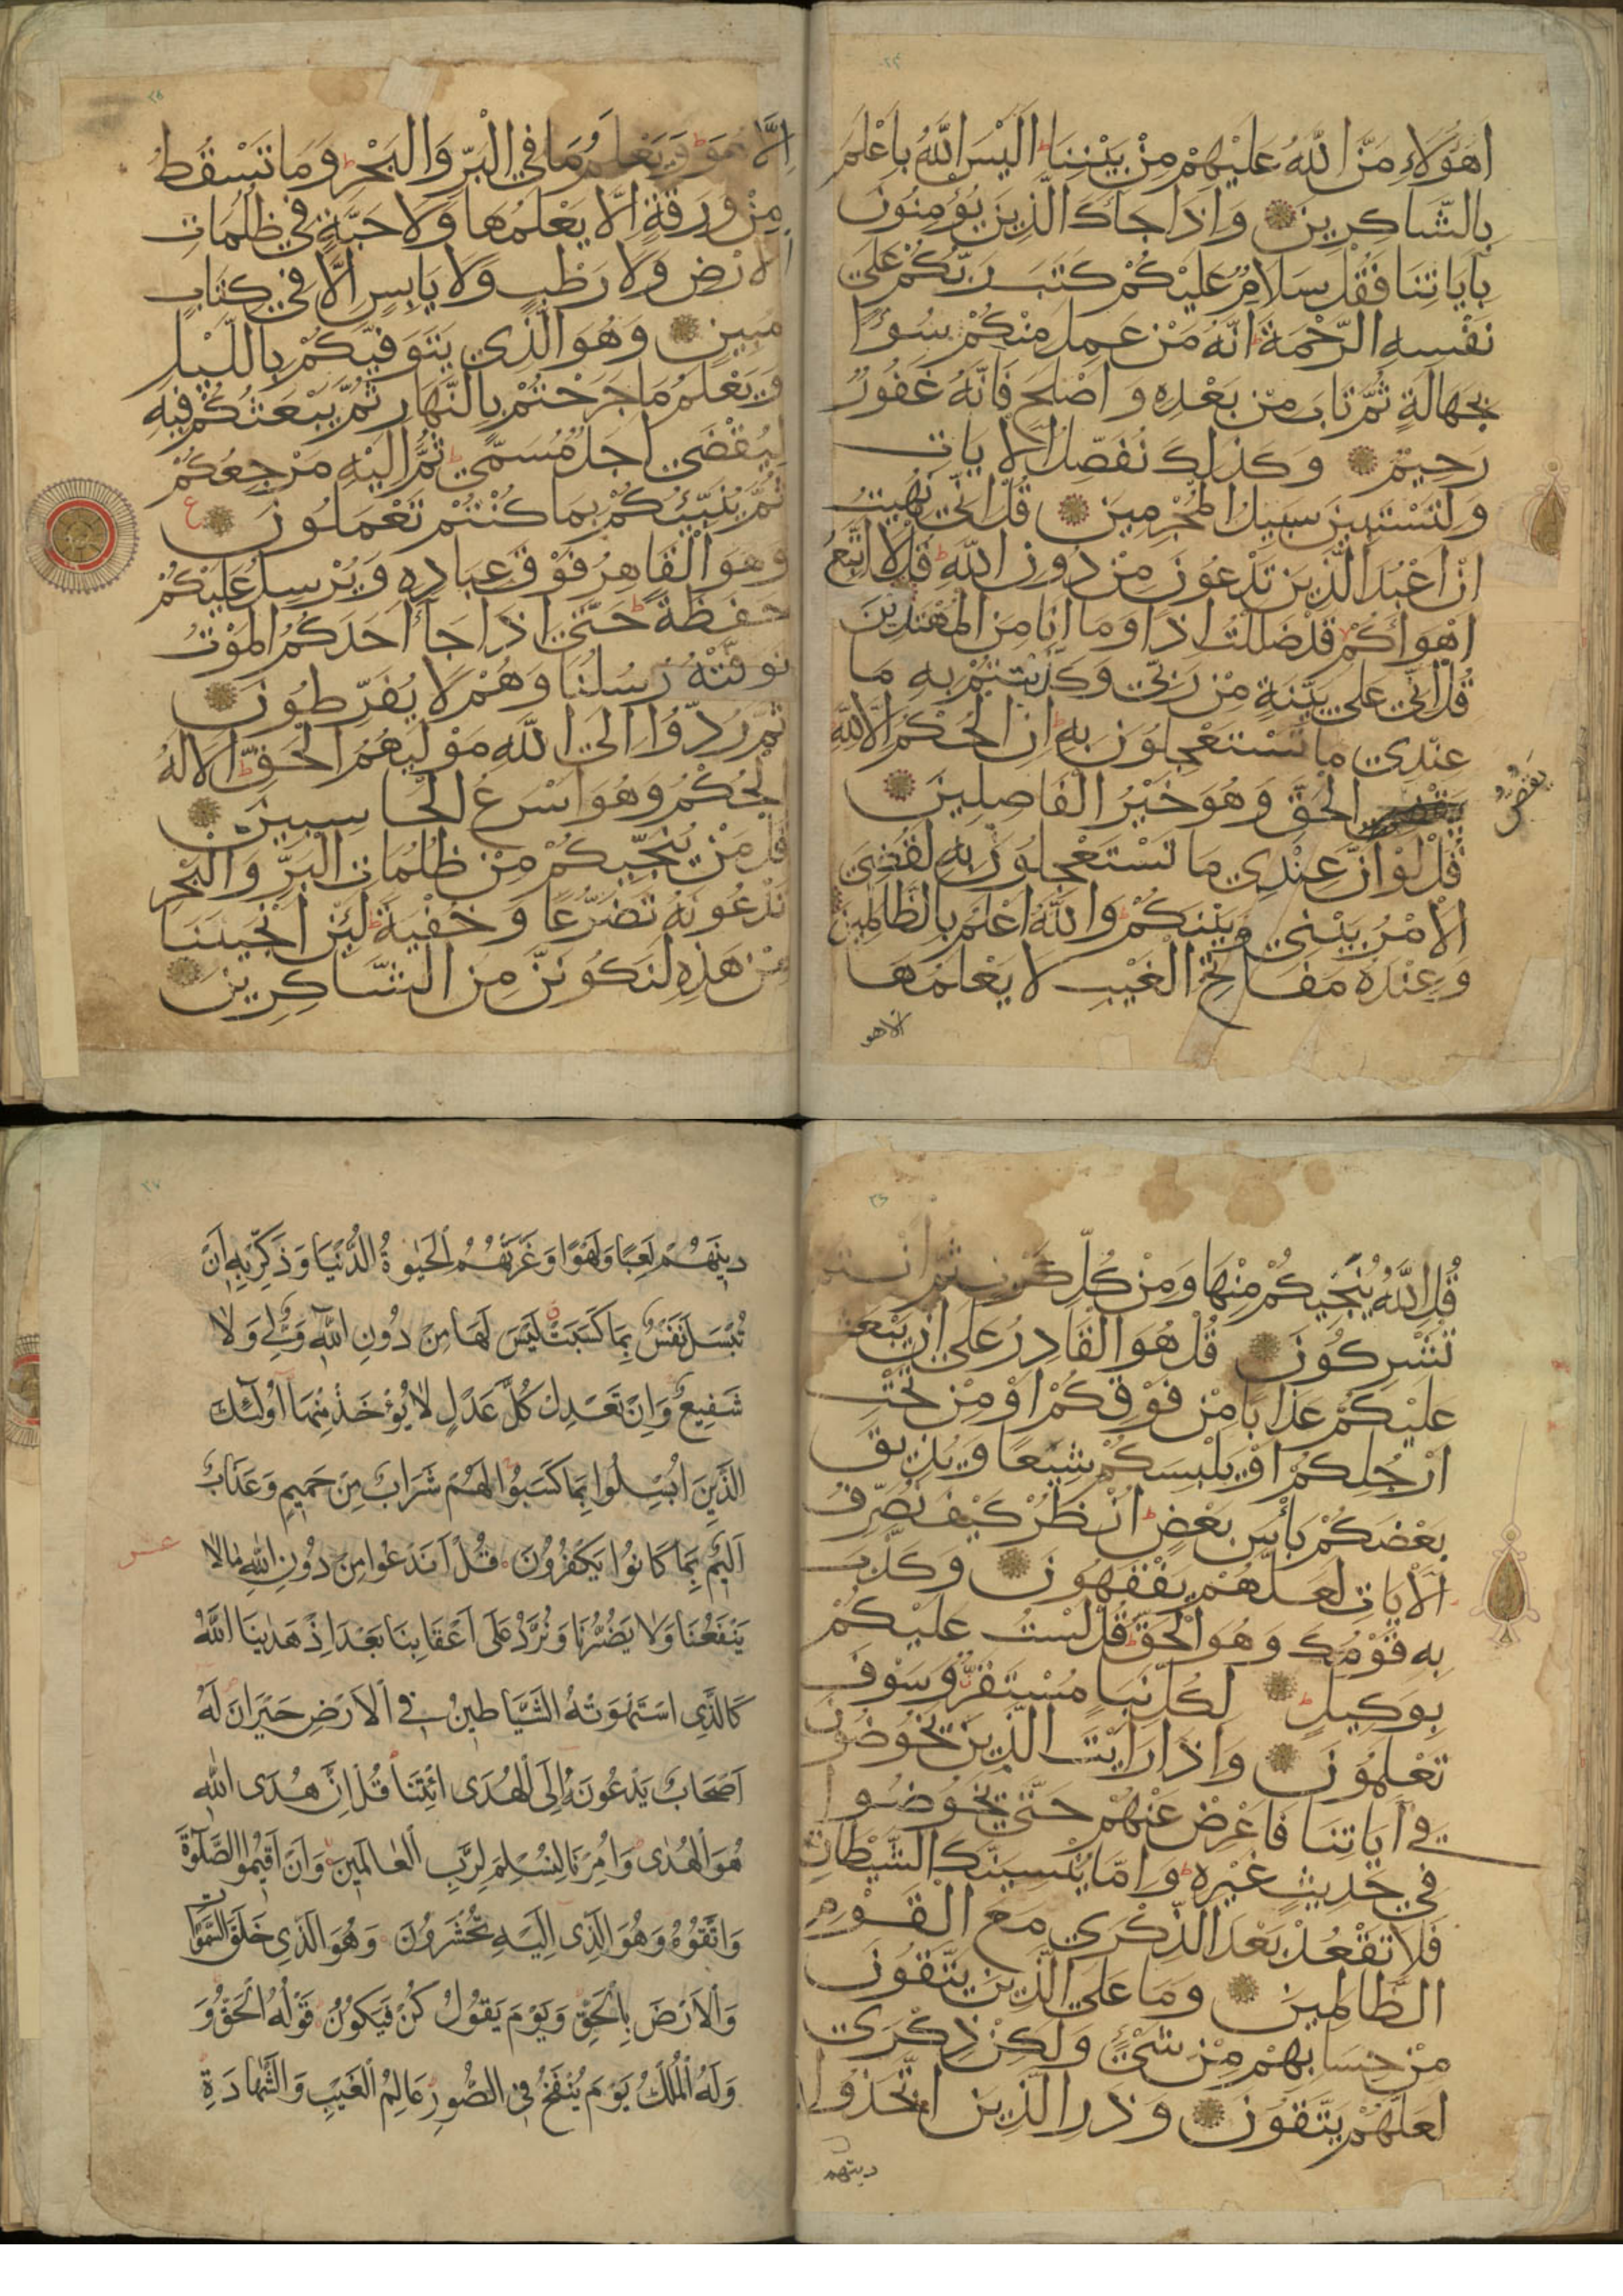 اهؤلاء منّ اللّه عليهم من بيننا اليس اللّه باعلم
بالشّاكرين واذا جاءك الّذين يؤمنون
باياتنا فقل سلام عليكم كتب ربّكم على
نفسه الرّحمة انّه من عمل منكم سوءا
بجهالة ثمّ تاب من بعده واصلح فانّه غفور
رحيم وكذلك نفصّل الايات
ولتستبين سبيل المجرمين قل انّي نهيت
ان اعبد الّذين تدعون من دون اللّه قل لا اتّبع
اهواءكم قد ضللت اذا وما انا من المهتدين
قل انّي على بيّنة من ربّي وكذّبتم به ما
عندي ما تستعجلون به ان الحكم الّا للّه
الحقّ وهو خير الفاصلين
يقصّ
قل لو انّ عندي ما تستعجلون به لقضي
الامر بيني وبينكم واللّه اعلم بالظّالمين
وعنده مفاتح الغيب لا يعلمها
الا هو
الّا هو ويعلم ما في البرّ والبحر وما تسقط
من ورقة الّا يعلمها ولا حبّة في ظلمات
الارض ولا رطب ولا يابس الّا في كتاب
مبين وهو الّذي يتوفّيكم باللّيل
ويعلم ما جرحتم بالنّهار ثمّ يبعثكم فيه
ليقضى اجل مسمّى ثمّ اليه مرجعكم
ثمّ ينبّئكم بما كنتم تعملون ع
وهو القاهر فوق عباده ويرسل عليكم
حفظة حتّى اذا جاء احدكم الموت
توفّته رسلنا وهم لا يفرّطون
ثمّ ردّوا الى اللّه موليهم الحقّ الا له
الحكم وهو اسرع الحاسبين
قل من ينجّيكم من ظلمات البرّ والبحر
تدعونه تضرّعا وخفية لئن انجيتنا
من هذه لنكوننّ من الشّاكرين
قل اللّه ينجّيكم منها ومن كلّ كرب ثمّ انتم
تشركون قل هو القادر على ان يبعث
عليكم عذابا من فوقكم او من تحت
ارجلكم او يلبسكم شيعا ويذيق
بعضكم بأس بعض انظر كيف نصرّف
الايات لعلّهم يفقهون وكذّب
به قومك وهو الحقّ قل لست عليكم
بوكيل لكلّ نبإ مستقرّ وسوف
تعلمون واذا رايت الّذين يخوضون
في آياتنا فاعرض عنهم حتّى يخوضوا
في حديث غيره وامّا ينسينّك الشّيطان
فلا تقعد بعد الذّكرى مع القوم
الظّالمين وما على الّذين يتّقون
من حسابهم من شيء ولكن ذكرى
لعلّهم يتّقون وذر الّذين اتّخذوا
دينهم
دينهم لعبا ولهوا وغرّتهم الحيوة الدّنيا وذكّر به ان
تبسل نفس بما كسبت ليس لها من دون اللّه وليّ ولا
شفيع وان تعدل كلّ عدل لا يؤخذ منها اولئك
الّذين ابسلوا بما كسبوا لهم شراب من حميم وعذاب
اليم بما كانوا يكفرون قل اندعوا من دون اللّه ما لا
عشر
ينفعنا ولا يضرّنا ونردّ على اعقابنا بعد اذ هدينا اللّه
كالّذي استهوته الشّياطين في الارض حيران له
اصحاب يدعونه الى الهدى ائتنا قل انّ هدى اللّه
هو الهدى وامرنا لنسلم لربّ العالمين وان اقيموا الصّلوة
واتّقوه وهو الّذي اليه تحشرون وهو الّذي خلق السّموات
والارض بالحقّ ويوم يقول كن فيكون قوله الحقّ و
وله الملك يوم ينفخ في الصّور عالم الغيب والشّهادة